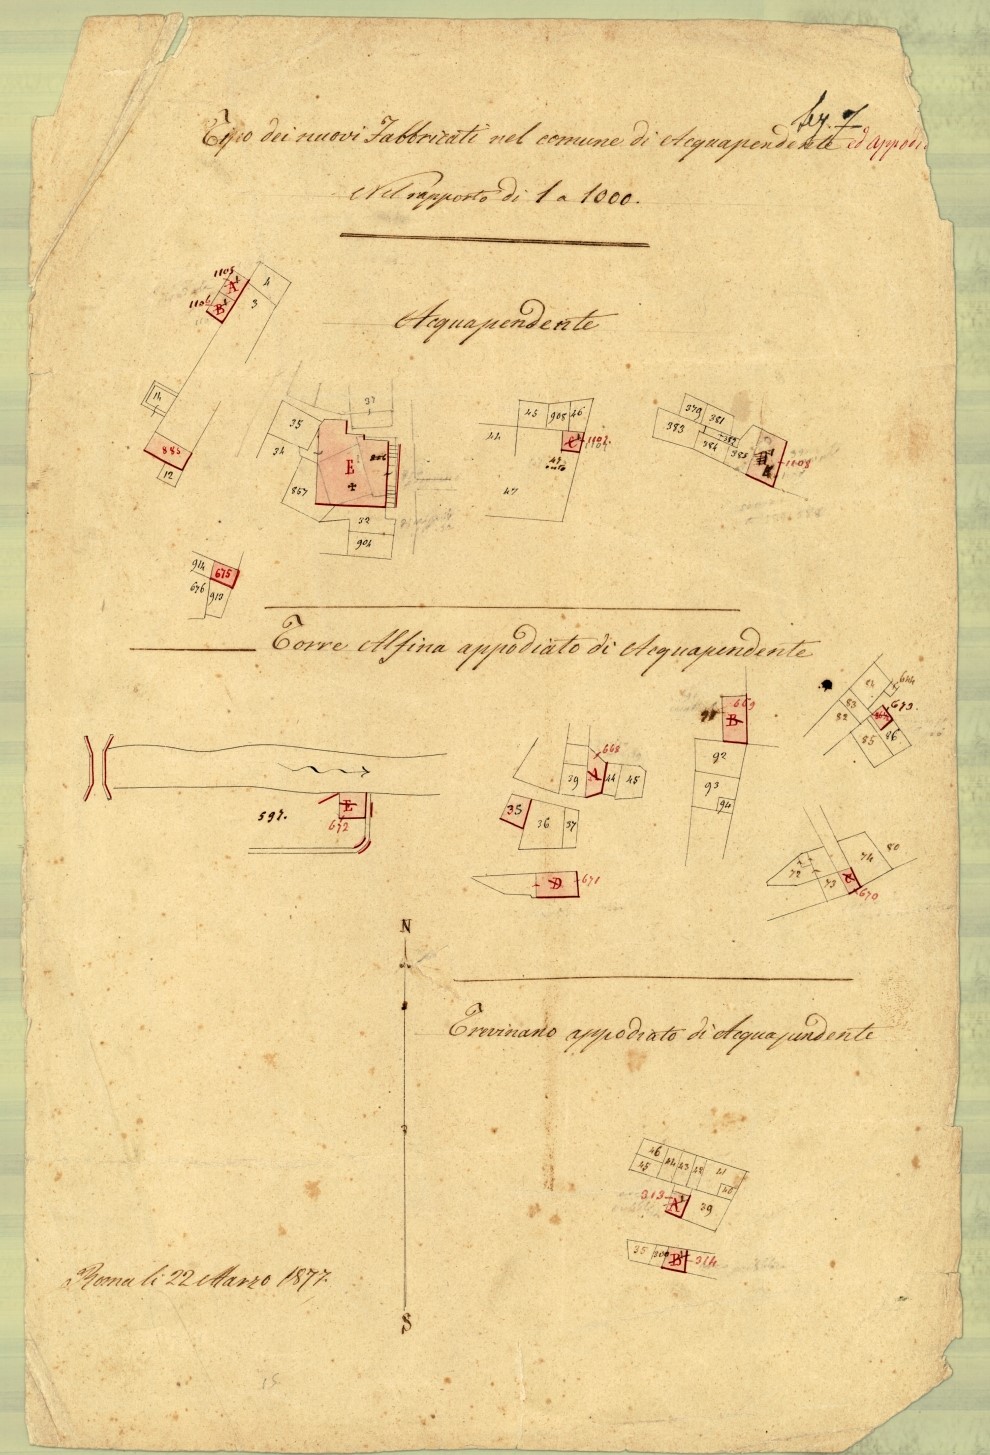 Tipo dei nuovi Fabbricati nel comune di Acquapendente ed appodi
Nel rapporto di 1 a 1000.
Acquapendente
1105
A
4
1106
B
3
14
885
12
35
37
34
E
886
867
32
904
45
908
46
44
C
1107.
47
379
381
383
382
384
385
1108
914
675
676
913
Torre Alfina appodiato di Acquapendente
669
B
92
93
94
84
674
83
673.
82
85
86
668
39
A
44
45
35
36
37
597.
E
672
D
671
74
80
72
73
670
N
Trevinano appodiato di Acquapendente
46
45
44
43
42
41
40
313
A
39
35
B
314
Roma li 22 Marzo 1877.
S